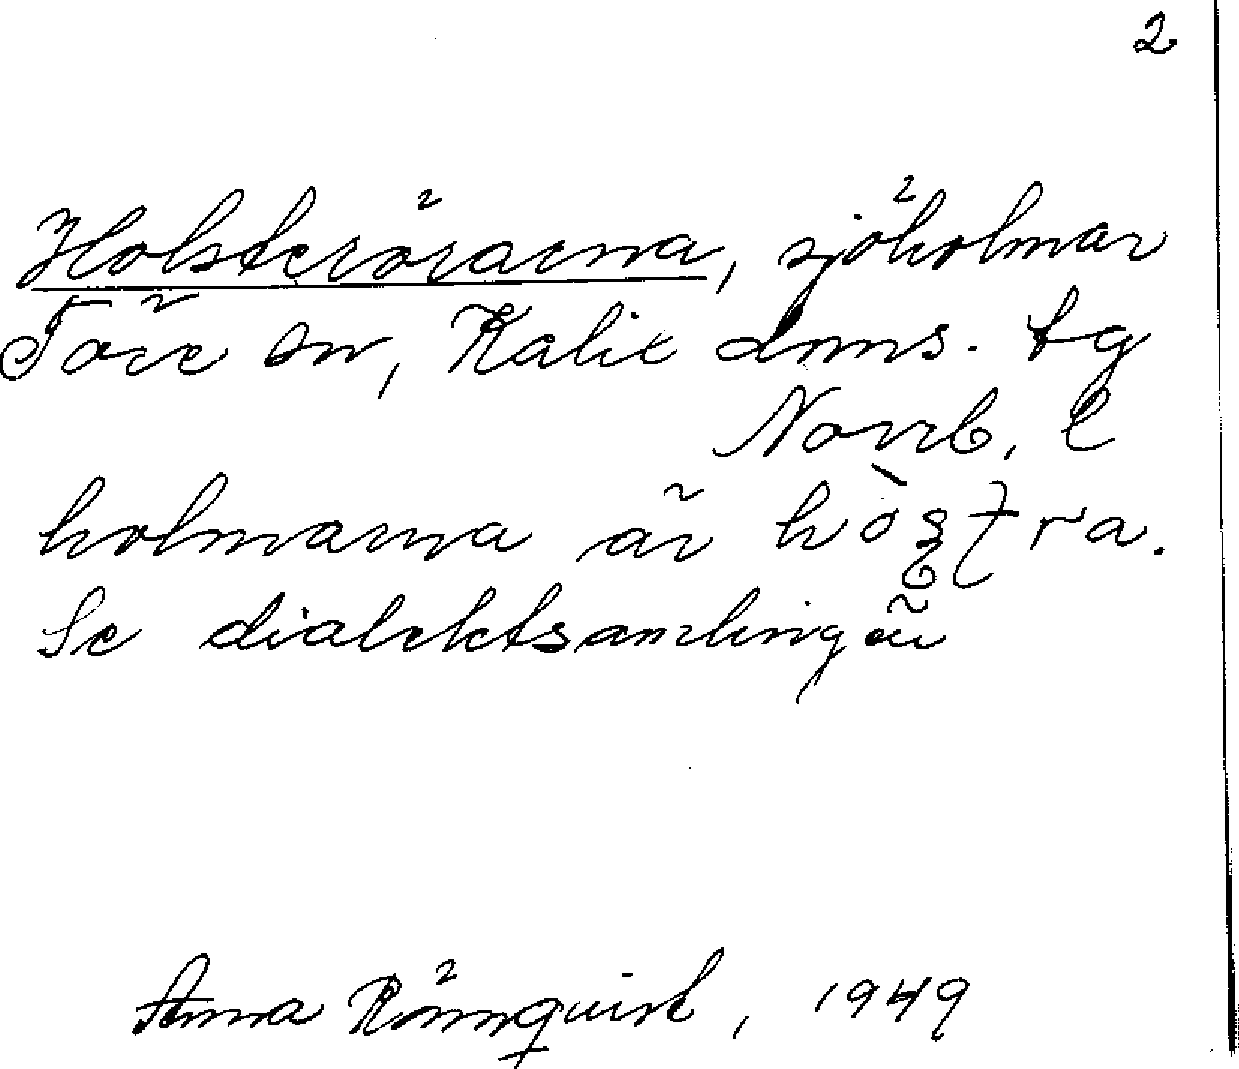 2
Holsterörarna, sjöholmar
Töre sn, Kalix dnms. tg
Norrb. l
holmarna är
Se dialektsamlingen
Anna Rönnquist, 1949